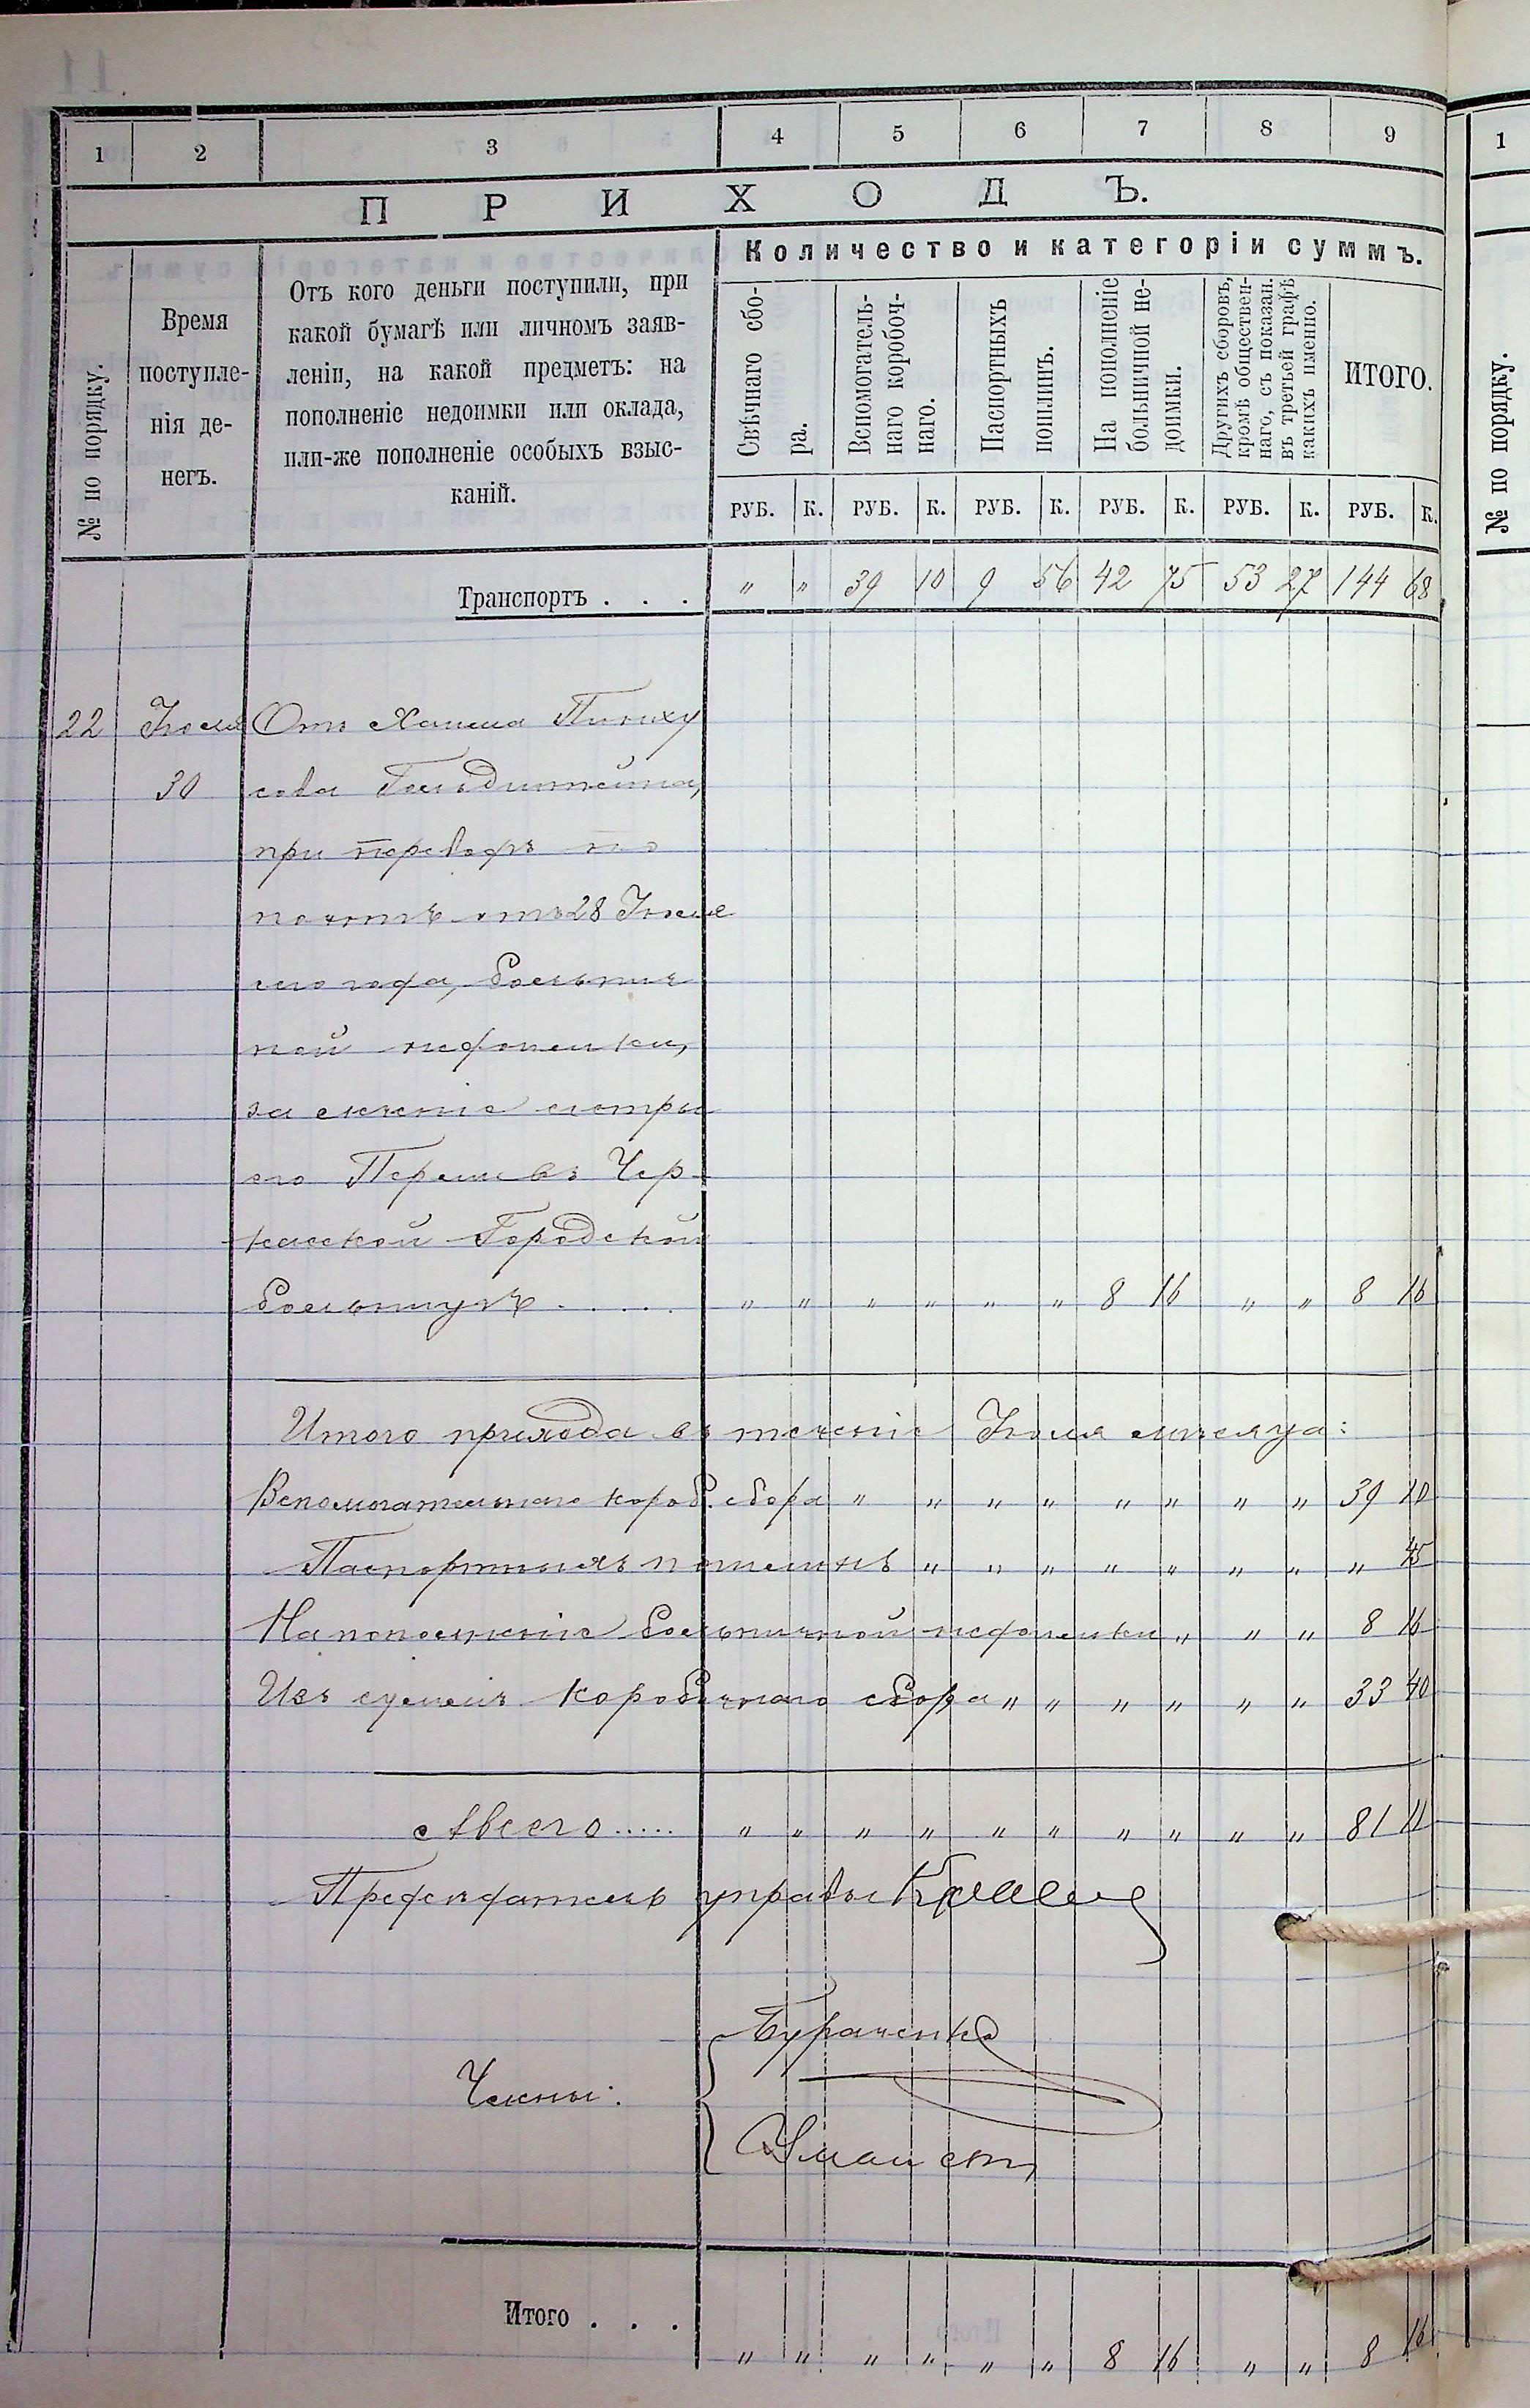 1 2 3 4 5 6 7 8 9
ПРИХОДЪ.
№ по порядку.
Время
поступле-
нія де-
негъ.
Отъ кого деньги поступили, при
какой бумагѣ или личномъ заяв-
леніи, на какой предметъ: на
пополненіе недоимки или оклада,
или-же пополненіе особыхъ взыс-
каній.
Количество и категоріи суммъ.
Свѣчнаго сбо-
ра.
Вспомогатель-
наго коробоч-
наго.
Паспортныхъ
пошлинъ.
На пополненіе
больничной не-
доимки.
Другихъ сборовъ,
кромѣ обществен-
наго, съ показан.
въ третьей графѣ
какихъ именно.
ИТОГО.
РУБ. К. РУБ. К. РУБ. К. РУБ. К. РУБ. К. РУБ. К.
Транспортъ . . . " " 39 10 9 56 42 75 53 27 144 68
22 Іюля Отъ Хаима Пинху
30 сова Гольдштейна,
при переводѣ по
почтѣ отъ 28 Іюля
сего года, больнич
ной недоимки,
за леченіе сестры
его Перли въ Чер-
касской Городской
больницѣ . . . . . " " " " " " 8 16 " " 8 16
Итого прихода въ теченіе Іюля мѣсяца:
Вспомогательнаго короб. сбора " " " " " " " " 39 10
Паспортныхъ пошлинъ " " " " " " " " 45
На пополненіе больничной недоимки " " " 8 16
Изъ суммъ коробочнаго сбора " " " " " " 33 40
Всего ..... " " " " " " " " " " 81 11
Предсѣдатель управы
Члены:
Бураченко
Уманскій
Итого . . . " " " " " " 8 16 " " 8 16
1
№ по порядку.